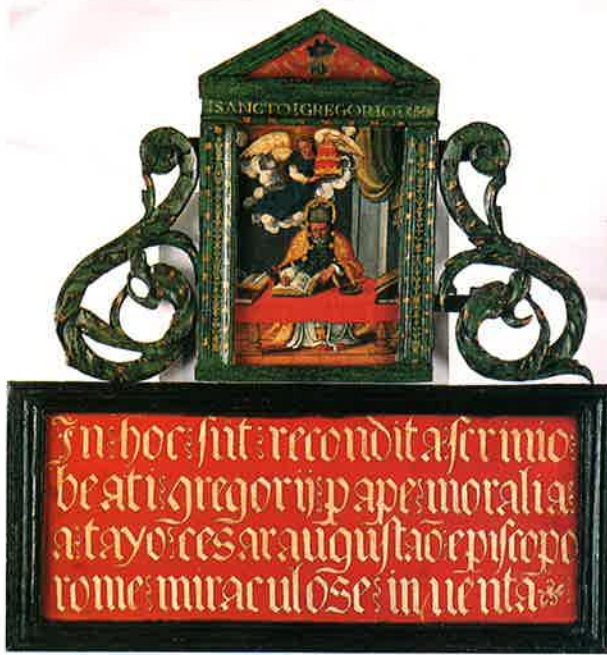 SANCTO GREGORIO
In hoc sũt recondita scrinio
beati gregorij pape moralia
a tayõ cesaraugustaõ episcopo
rome miraculose inuenta